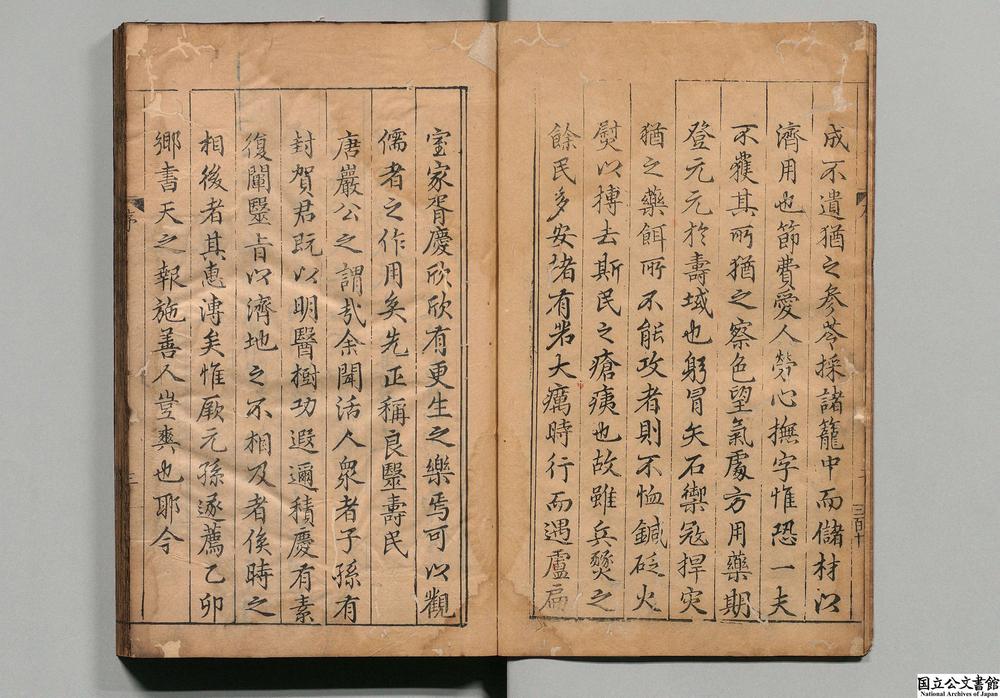 成不遺猶之參苓採諸籠中而儲材以
濟用也節費愛人勞心撫字惟恐一夫
不獲其所猶之察色望氣處方用藥期
登元元於壽域也躬冒矢石禦寇捍灾
猶之藥餌所不能攻者則不恤鍼砭火
熨以摶去斯民之瘡痍也故雖兵燹之
餘民多安堵有若大癘時行而遇盧扁
三百十
室家胥慶欣欣有更生之樂焉可以觀
儒者之作用矣先正稱良毉壽民
唐巖公之謂哉余聞活人衆者子孫有
封賀君既以明醫樹功遐邇積慶有素
復闡毉旨以濟地之不相及者俟時之
相後者其惠溥矣惟厥元孫遂薦乙卯
鄉書天之報施善人豈爽也耶今
序
三
国立公文書館
National Archives of Japan